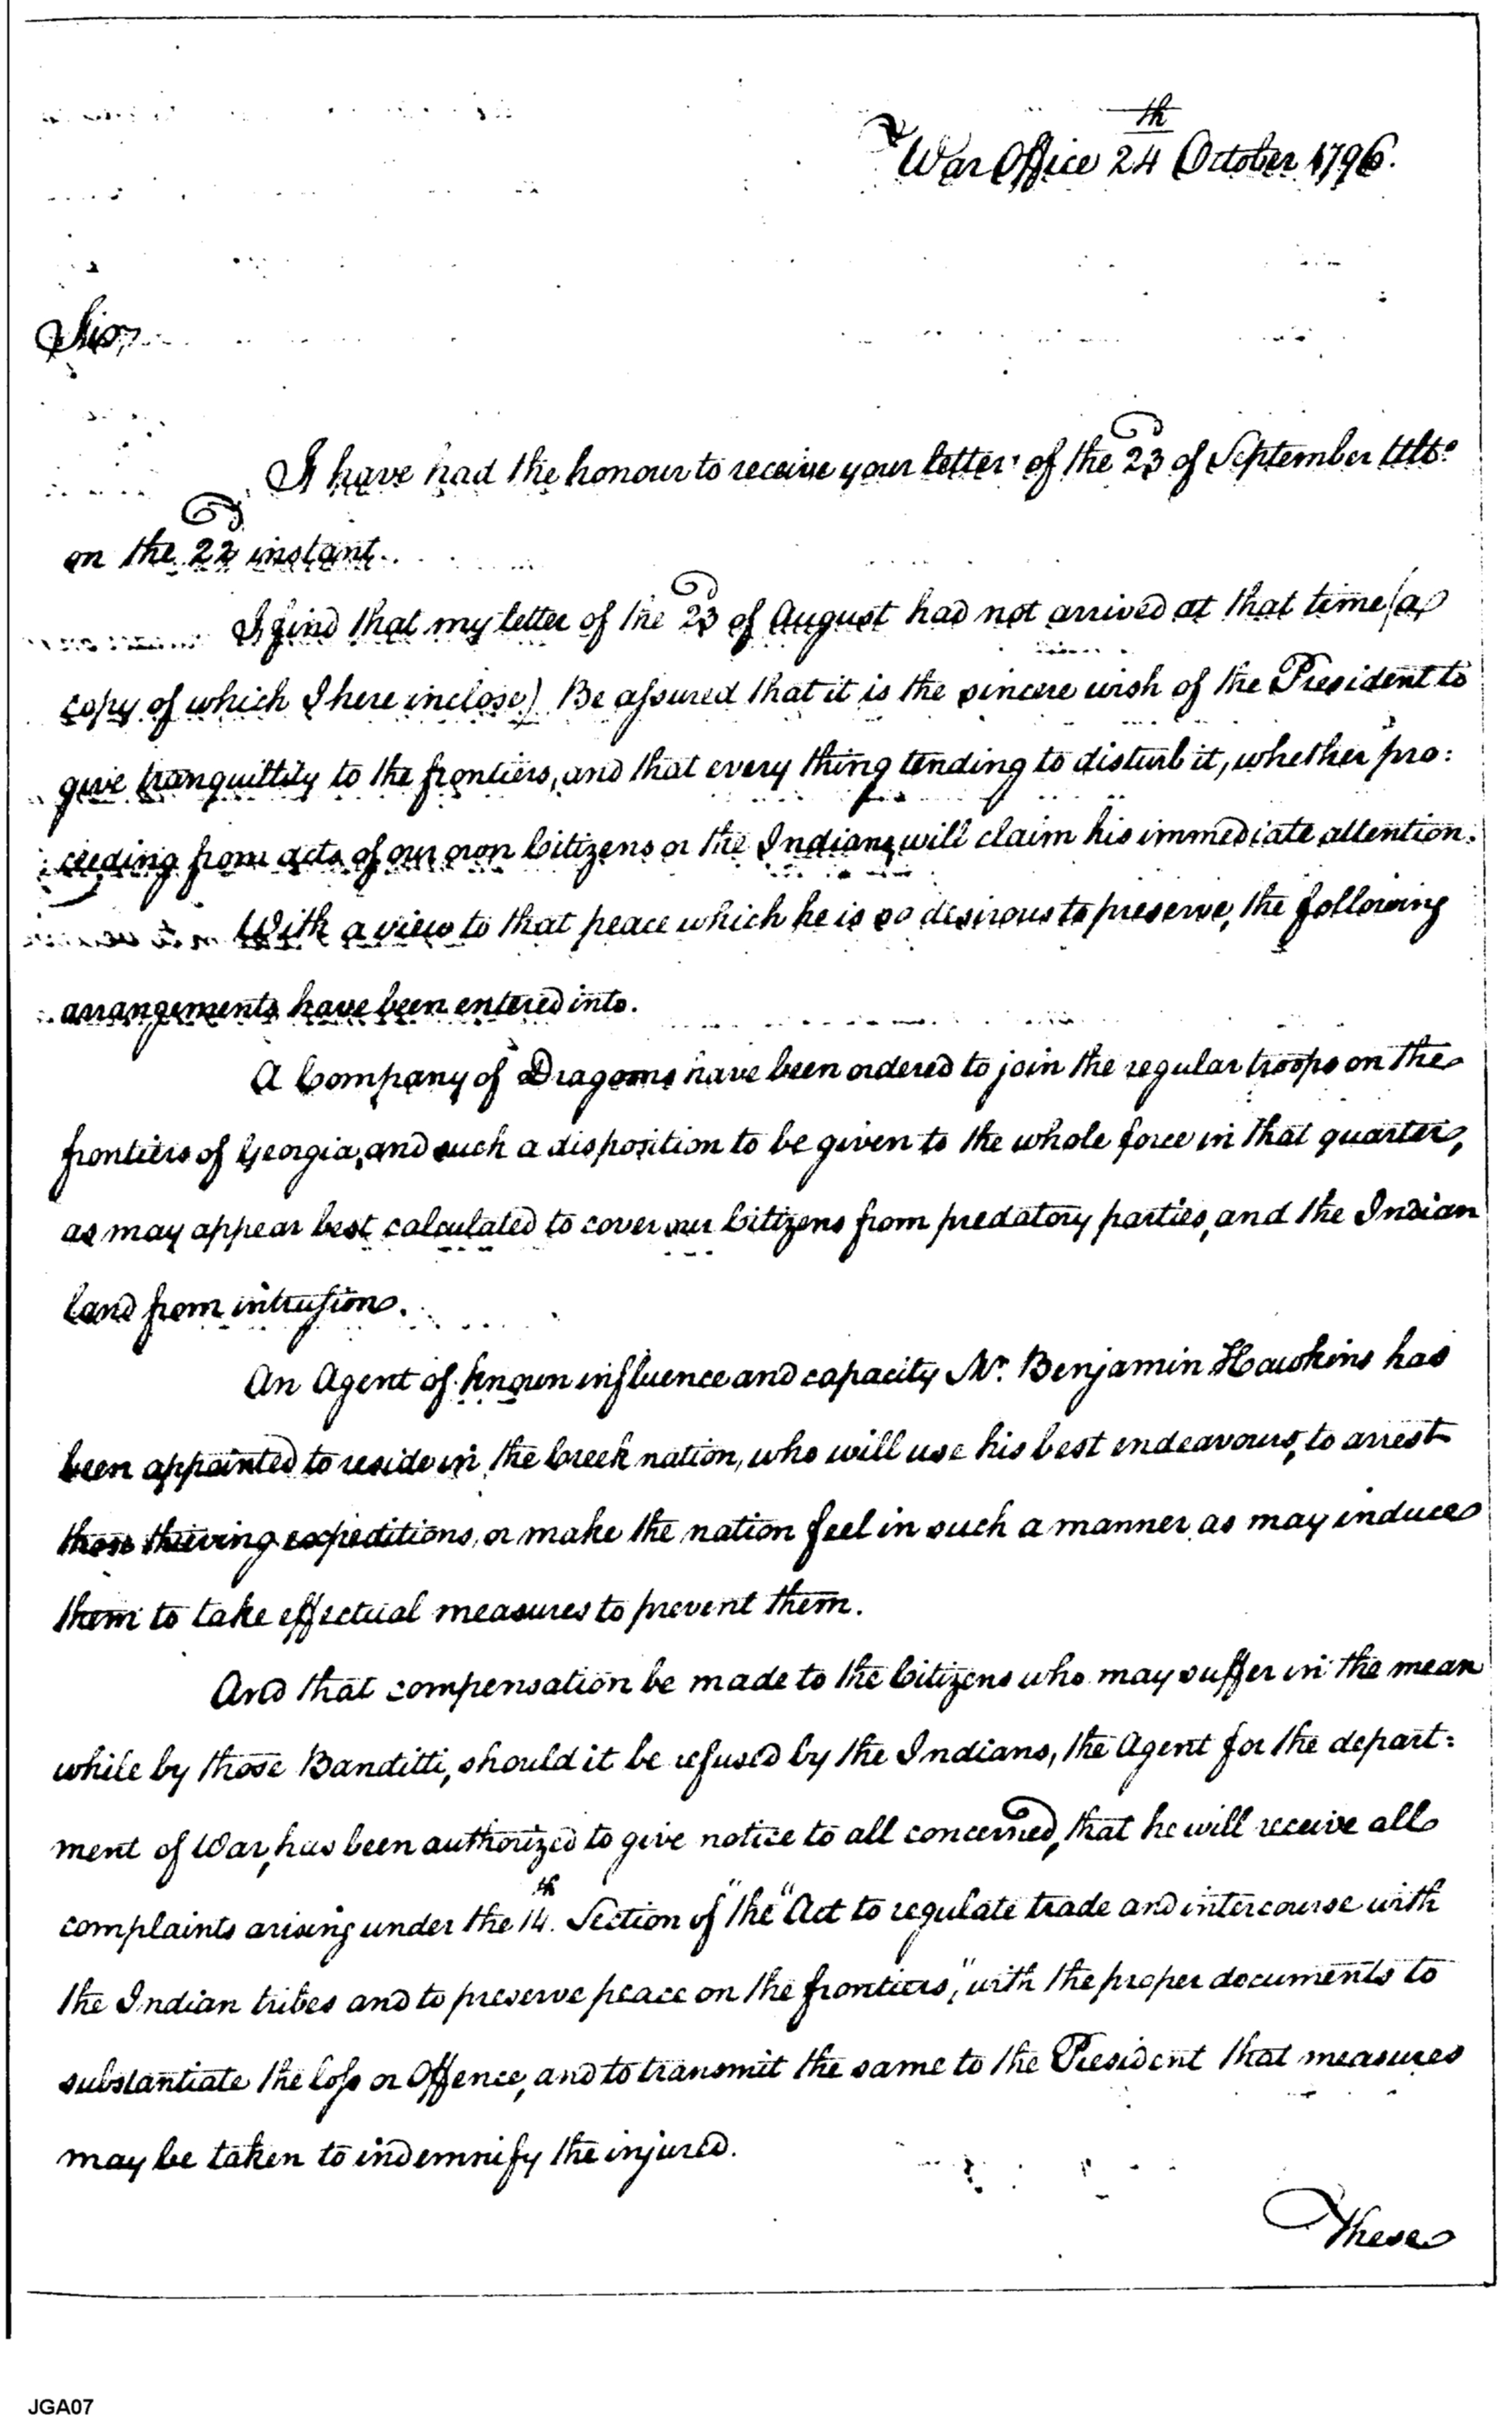 War Office 24th October 1796.
Sir,
I have had the honour to receive your letter of the 23d of September Ulto
on the 22d instant.
I find that my letter of the 23d of August had not arrived at that time (a
copy of which I here inclose) Be assured that it is the sincere wish of the President to
give tranquillity to the frontiers, and that every thing tending to disturb it, whether pro:
ceeding from acts of our own Citizens or the Indians will claim his immediate attention.
With a view to that peace which he is so desirous to preserve, the following
arrangements have been entered into.
A Company of Dragoons have been ordered to join the regular troops on the
frontiers of Georgia, and such a disposition to be given to the whole force in that quarter,
as may appear best calculated to cover our Citizens from predatory parties, and the Indian
land from intrusion.
An Agent of known influence and capacity Mr. Benjamin Hawkins has
been appointed to reside in the Creek nation, who will use his best endeavours, to arrest
those thieving expeditions, or make the nation feel in such a manner as may induce
them to take effectual measures to prevent them.
And that compensation be made to the Citizens who may suffer in the mean
while by those Banditti, should it be refused by the Indians, the Agent for the depart:
ment of War, has been authorized to give notice to all concerned, that he will receive all
complaints arising under the 14th. Section of "the" Act to regulate trade and intercourse with
the Indian tribes and to preserve peace on the frontiers," with the proper documents to
substantiate the loss or Offence, and to transmit the same to the President that measures
may be taken to indemnify the injured.
These
JGA07